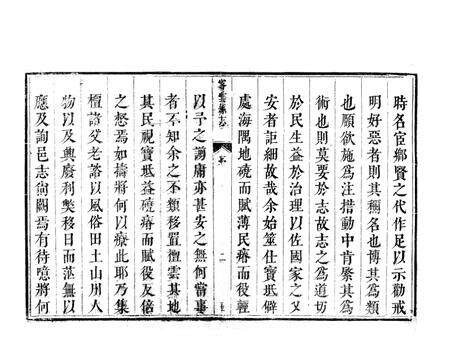 時名宦鄉賢之代作足以示勸戒
明好惡者則其稱名也博其為類
也願欲施為注措動中肯綮其為
術也則莫要於志故志之為道切
於民生益於治理以佐國家之乂
安者詎細故哉余始筮仕寶坻僻
處海隅地磽而賦薄民瘠而役輕
密雲縣志
序
二
以予之謭庸亦甚安之無何當事
者不知余之不類移置檀雲其地
其民視寶坻益磽瘠而賦役反倍
之惄焉如擣將何以療此耶乃集
檀諸父老諮以風俗田土山川人
物以及興廢利弊移日而茫無以
應及詢邑志尚闕焉有待噫將何